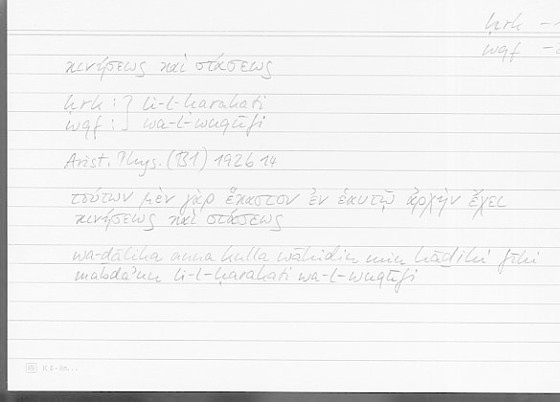 ḥrk
wqf
κινήσεως καὶ στάσεως
ḥrk : } li-l-ḥarakati
wqf : } wa-l-wuqūfi
Arist. Phys. (B1) 192b14
τούτων μὲν γὰρ ἕκαστον ἐν ἑαυτῷ ἀρχὴν ἔχει
κινήσεως καὶ στάσεως
wa-ḏālika anna kulla wāḥidin min hāḏihī fīhi
mabdaʾun li-l-ḥarakati wa-l-wuqūfi